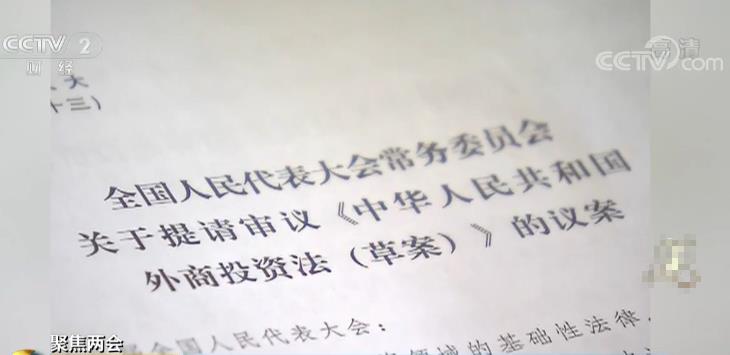 CCTV 2
财经
高清
CCTV.com
大
十三）
全国人民代表大会常务委员会
关于提请审议《中华人民共和国
外商投资法（草案）》的议案
全国人民代表大会：
领域的基础性法律
聚焦两会